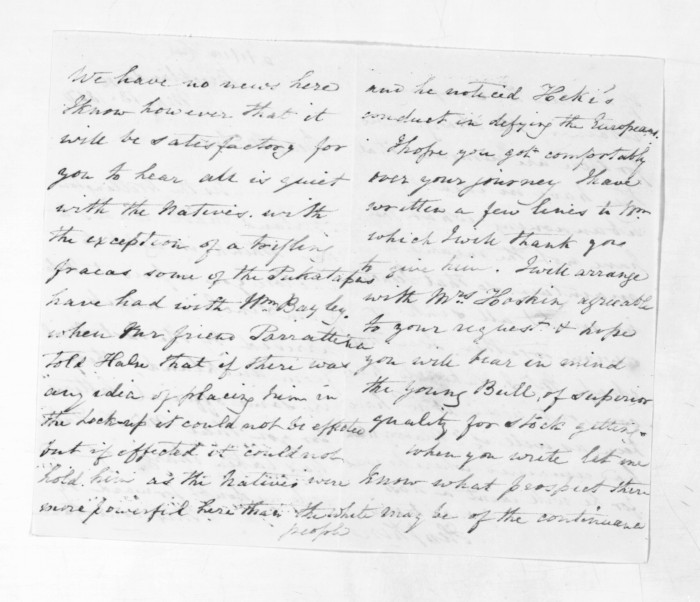 We have no news here
I know however that it
will be satisfactory for
you to hear all is quiet
with the Natives. with
the exception of a trifling
fracas some of the Puketapu's
have had with Wm Bayley.
when our friend Parrattena
told Halse that if there was
any idea of placing him in
the Lock-up it could not be effected
but if effected it could not
hold him as the Natives were
more powerful here than the white
people
and he noticed Heki's
conduct in defying the Europeans.
I hope you got comfortably
over your journey I have
written a few lines to Wm
which I will thank you
to give him. I will arrange
with Mrs Hoskin agreeable
to your request & hope
you will bear in mind
the young Bull, of superior
quality for stock getting.
When you write let me
know what prospect there
may be of the continuance